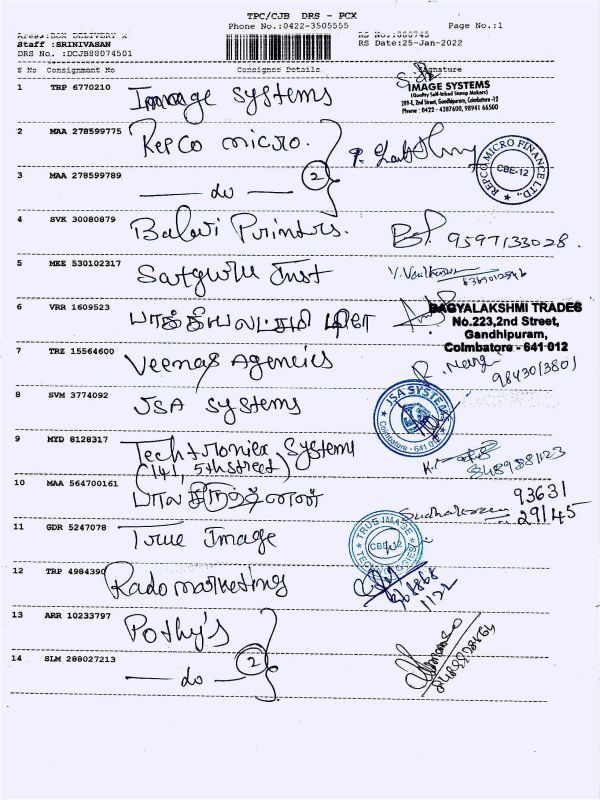 TPC/CJB DRS - PCX
Phone No.:0422-3505555 Page No.:1
Areas:BOX DELIVERY X RS No.:888745
Staff :SRINIVASAN RS Date:25-Jan-2022
DRS No. :DCJB88074501
S No Consignment No Consignee Details Signature
1 TRP 6770210 Immage systems
IMAGE SYSTEMS
(Quality Self-Inked Stamp Makers)
289-E, 2nd Street, Gandhipuram, Coimbatore -12
Phone : 0422 - 4387600, 98941 66500
2 MAA 278599775 Repco micro.
REPCO MICRO FINANCE LTD.,
CBE-12
3 MAA 278599789 — do — 2
4 SVK 30080879 Balavi Printers. 9597133028.
5 MEE 530102317 Satguru Trust
6 VRR 1609523 பாக்கியலட்சுமி டிரே
BAGYALAKSHMI TRADES
No.223,2nd Street,
Gandhipuram,
Coimbatore - 641 012
7 TRZ 15564600 Veenas Agencies
9843013801
8 SVM 3774092 JSA systems
JSA SYSTEMS
Coimbatore - 641 012
9 MYD 8128317 Techtronics Systems
(141, 5th street) 8489881123
10 MAA 564700161 93631
29145
11 GDR 5247078 True Image
TRUE IMAGE
TECHNOLOGIES
CBE-12
12 TRP 4984390 Rado marketing
13 ARR 10233797 Pothy's
14 SLM 288027213 — do — 2